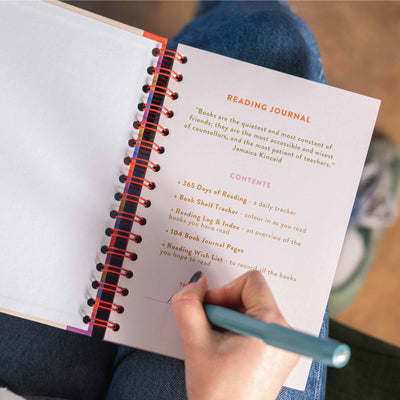 READING JOURNAL
"Books are the quietest and most constant of
friends; they are the most accessible and wisest
of counsellors, and the most patient of teachers."
Jamaica Kincaid
CONTENTS
• 365 Days of Reading - a daily tracker
• Book Shelf Tracker - colour in as you read
• Reading Log & Index - an overview of the
books you have read
• 104 Book Journal Pages
• Reading Wish List - to record all the books
you hope to read